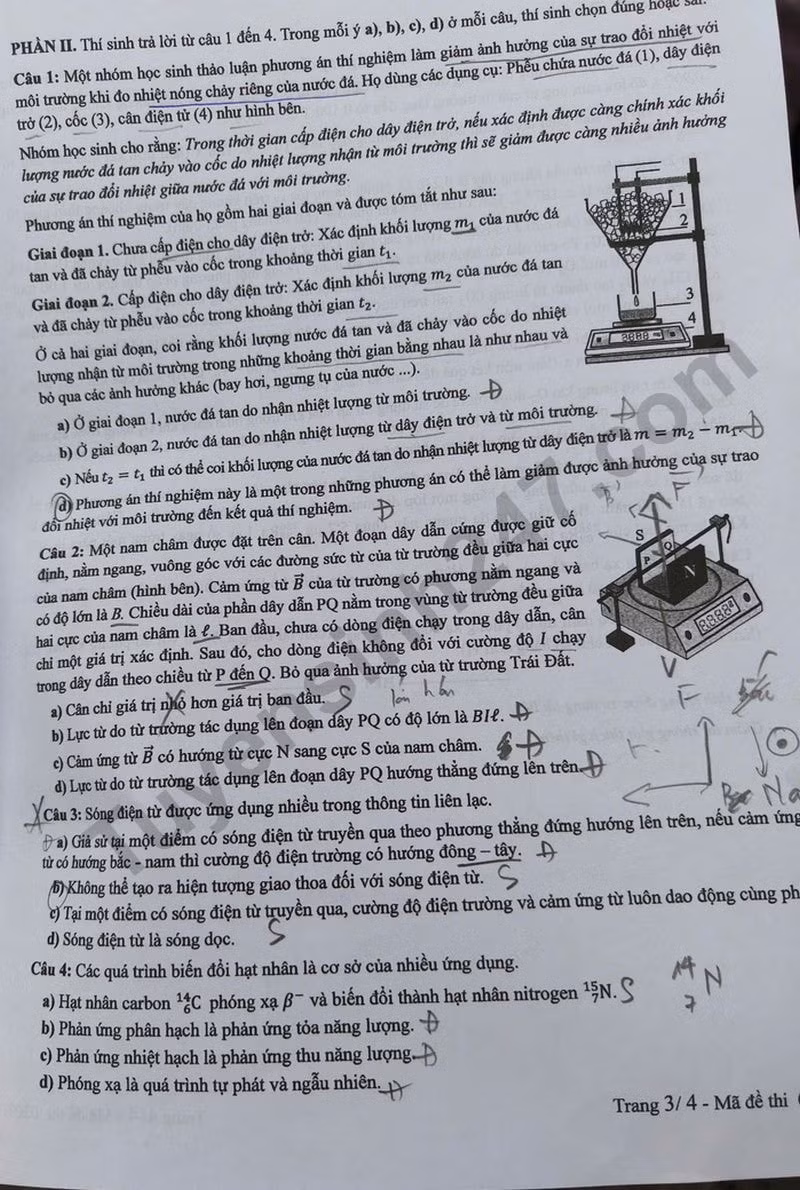 PHẦN II. Thí sinh trả lời từ câu 1 đến 4. Trong mỗi ý a), b), c), d) ở mỗi câu, thí sinh chọn đúng hoặc sai.
Câu 1: Một nhóm học sinh thảo luận phương án thí nghiệm làm giảm ảnh hưởng của sự trao đổi nhiệt với
môi trường khi đo nhiệt nóng chảy riêng của nước đá. Họ dùng các dụng cụ: Phễu chứa nước đá (1), dây điện
trở (2), cốc (3), cân điện tử (4) như hình bên.
Nhóm học sinh cho rằng: Trong thời gian cấp điện cho dây điện trở, nếu xác định được càng chính xác khối
lượng nước đá tan chảy vào cốc do nhiệt lượng nhận từ môi trường thì sẽ giảm được càng nhiều ảnh hưởng
của sự trao đổi nhiệt giữa nước đá với môi trường.
Phương án thí nghiệm của họ gồm hai giai đoạn và được tóm tắt như sau:
Giai đoạn 1. Chưa cấp điện cho dây điện trở: Xác định khối lượng m₁ của nước đá
tan và đã chảy từ phễu vào cốc trong khoảng thời gian t₁.
Giai đoạn 2. Cấp điện cho dây điện trở: Xác định khối lượng m₂ của nước đá tan
và đã chảy từ phễu vào cốc trong khoảng thời gian t₂.
Ở cả hai giai đoạn, coi rằng khối lượng nước đá tan và đã chảy vào cốc do nhiệt
lượng nhận từ môi trường trong những khoảng thời gian bằng nhau là như nhau và
bỏ qua các ảnh hưởng khác (bay hơi, ngưng tụ của nước ...).
1
2
3
4
a) Ở giai đoạn 1, nước đá tan do nhận nhiệt lượng từ môi trường. Đ
b) Ở giai đoạn 2, nước đá tan do nhận nhiệt lượng từ dây điện trở và từ môi trường. Đ
c) Nếu t₂ = t₁ thì có thể coi khối lượng của nước đá tan do nhận nhiệt lượng từ dây điện trở là m = m₂ − m₁. Đ
d) Phương án thí nghiệm này là một trong những phương án có thể làm giảm được ảnh hưởng của sự trao
đổi nhiệt với môi trường đến kết quả thí nghiệm. Đ
Câu 2: Một nam châm được đặt trên cân. Một đoạn dây dẫn cứng được giữ cố
định, nằm ngang, vuông góc với các đường sức từ của từ trường đều giữa hai cực
của nam châm (hình bên). Cảm ứng từ B⃗ của từ trường có phương nằm ngang và
có độ lớn là B. Chiều dài của phần dây dẫn PQ nằm trong vùng từ trường đều giữa
hai cực của nam châm là ℓ. Ban đầu, chưa có dòng điện chạy trong dây dẫn, cân
chỉ một giá trị xác định. Sau đó, cho dòng điện không đổi với cường độ I chạy
trong dây dẫn theo chiều từ P đến Q. Bỏ qua ảnh hưởng của từ trường Trái Đất.
F
S
P
Q
N
a) Cân chỉ giá trị nhỏ hơn giá trị ban đầu. S lớn hơn
b) Lực từ do từ trường tác dụng lên đoạn dây PQ có độ lớn là BIℓ. Đ
c) Cảm ứng từ B⃗ có hướng từ cực N sang cực S của nam châm. Đ
d) Lực từ do từ trường tác dụng lên đoạn dây PQ hướng thẳng đứng lên trên. Đ
V
F
Câu 3: Sóng điện từ được ứng dụng nhiều trong thông tin liên lạc.
a) Giả sử tại một điểm có sóng điện từ truyền qua theo phương thẳng đứng hướng lên trên, nếu cảm ứng
từ có hướng bắc - nam thì cường độ điện trường có hướng đông – tây. Đ
b) Không thể tạo ra hiện tượng giao thoa đối với sóng điện từ. S
c) Tại một điểm có sóng điện từ truyền qua, cường độ điện trường và cảm ứng từ luôn dao động cùng ph
d) Sóng điện từ là sóng dọc. S
Câu 4: Các quá trình biến đổi hạt nhân là cơ sở của nhiều ứng dụng.
a) Hạt nhân carbon ¹⁴₆C phóng xạ β⁻ và biến đổi thành hạt nhân nitrogen ¹⁵₇N. S ¹⁴₇N
b) Phản ứng phân hạch là phản ứng tỏa năng lượng. Đ
c) Phản ứng nhiệt hạch là phản ứng thu năng lượng. Đ
d) Phóng xạ là quá trình tự phát và ngẫu nhiên. Đ
Trang 3/ 4 - Mã đề thi
Tuyensinh247.com